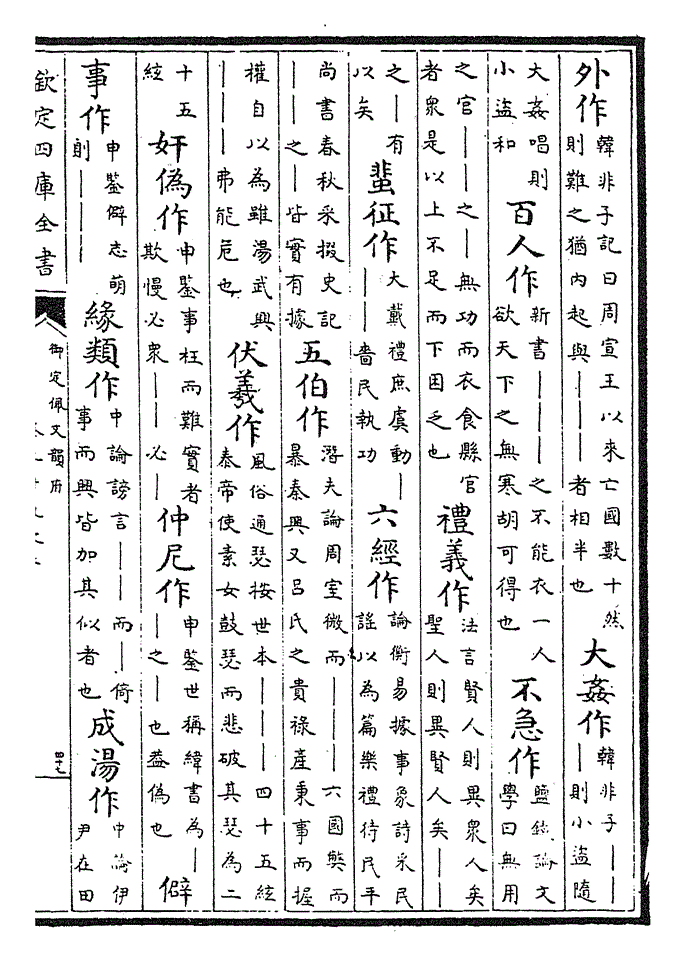 外作韓非子記曰周宣王以來亡國數十然則難之猶内起與｜｜｜者相半也大姦作韓非子｜｜｜則小盗隨
大姦唱則小盗和百人作新書｜｜｜之不能衣一人欲天下之無寒胡可得也不急作鹽鐵論文學曰無用
之官｜｜之｜無功而衣食縣官者衆是以上不足而下困乏也禮義作法言賢人則異衆人矣聖人則異賢人矣｜｜
之｜有以矣蜚征作大戴禮庶虞動｜｜｜嗇民執功六經作論衡易據事象詩采民謡以為篇樂禮待民平
尚書春秋采掇史記｜｜之｜皆實有據五伯作潛夫論周室微而｜｜｜六國弊而暴秦興又吕氏之貴禄産秉事而握
權自以為雖湯武興｜弗能危也伏羲作風俗通瑟按世本｜｜｜四十五絃泰帝使素女鼓瑟而悲破其瑟為二
十五絃奸偽作申鑒事枉而難實者欺慢必衆｜｜必｜仲尼作申鑒世稱緯書為｜｜之｜也葢偽也僻
事作申鑒僻志萌則｜｜｜緣類作中論謗言｜｜而｜倚事而興皆加其似者也成湯作中論伊尹在田
欽定四庫全書
御定佩文韻府
四十七